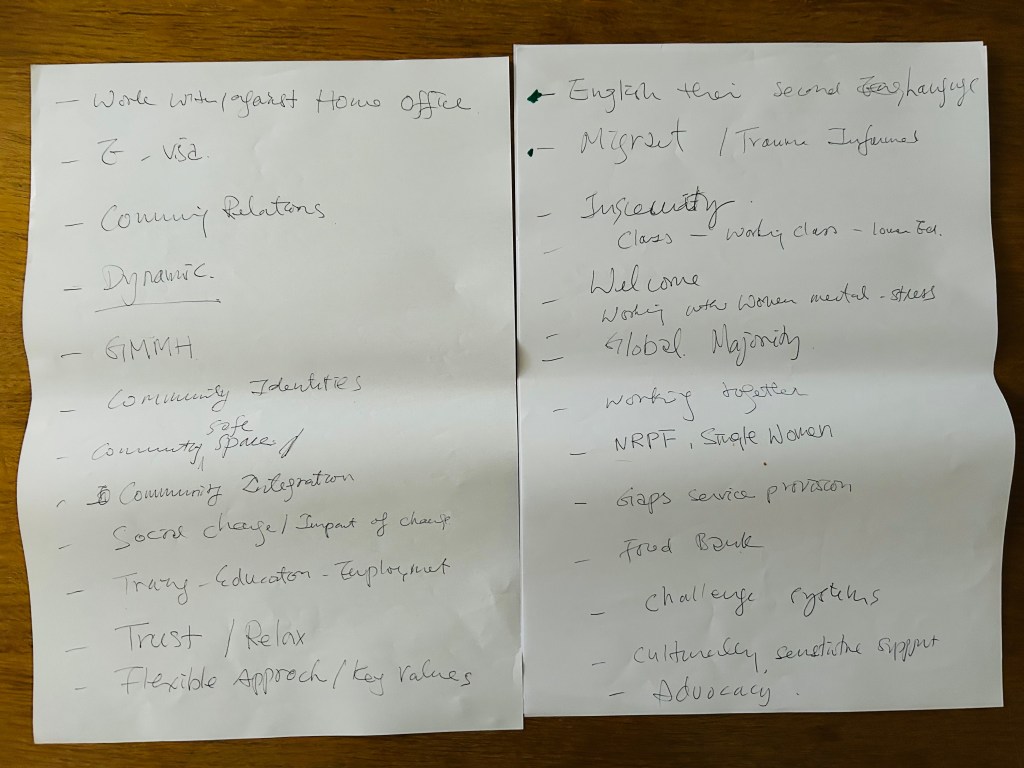 - Work with/against Home Office
- E-visa.
- Communiy Relations
- Dynamic.
- GMMH
- Community Identities
- Community safe space/
- Community Integration
- Social change/Impact of change
- Traing - Education - Employmet
- Trust / Relax
- Flexible Approch/Key values
- English their second Language
- Migrant / Trauma Informed
- Insecurity
- Class - working class - lower Ed.
- Welcome
working with women mental-stress
- Global Majority
- working together
- NRPF, Single Women
- Gaps service provision
- Food Bank
- Challenge systems
- Culturally sensitive support
- Advocacy.